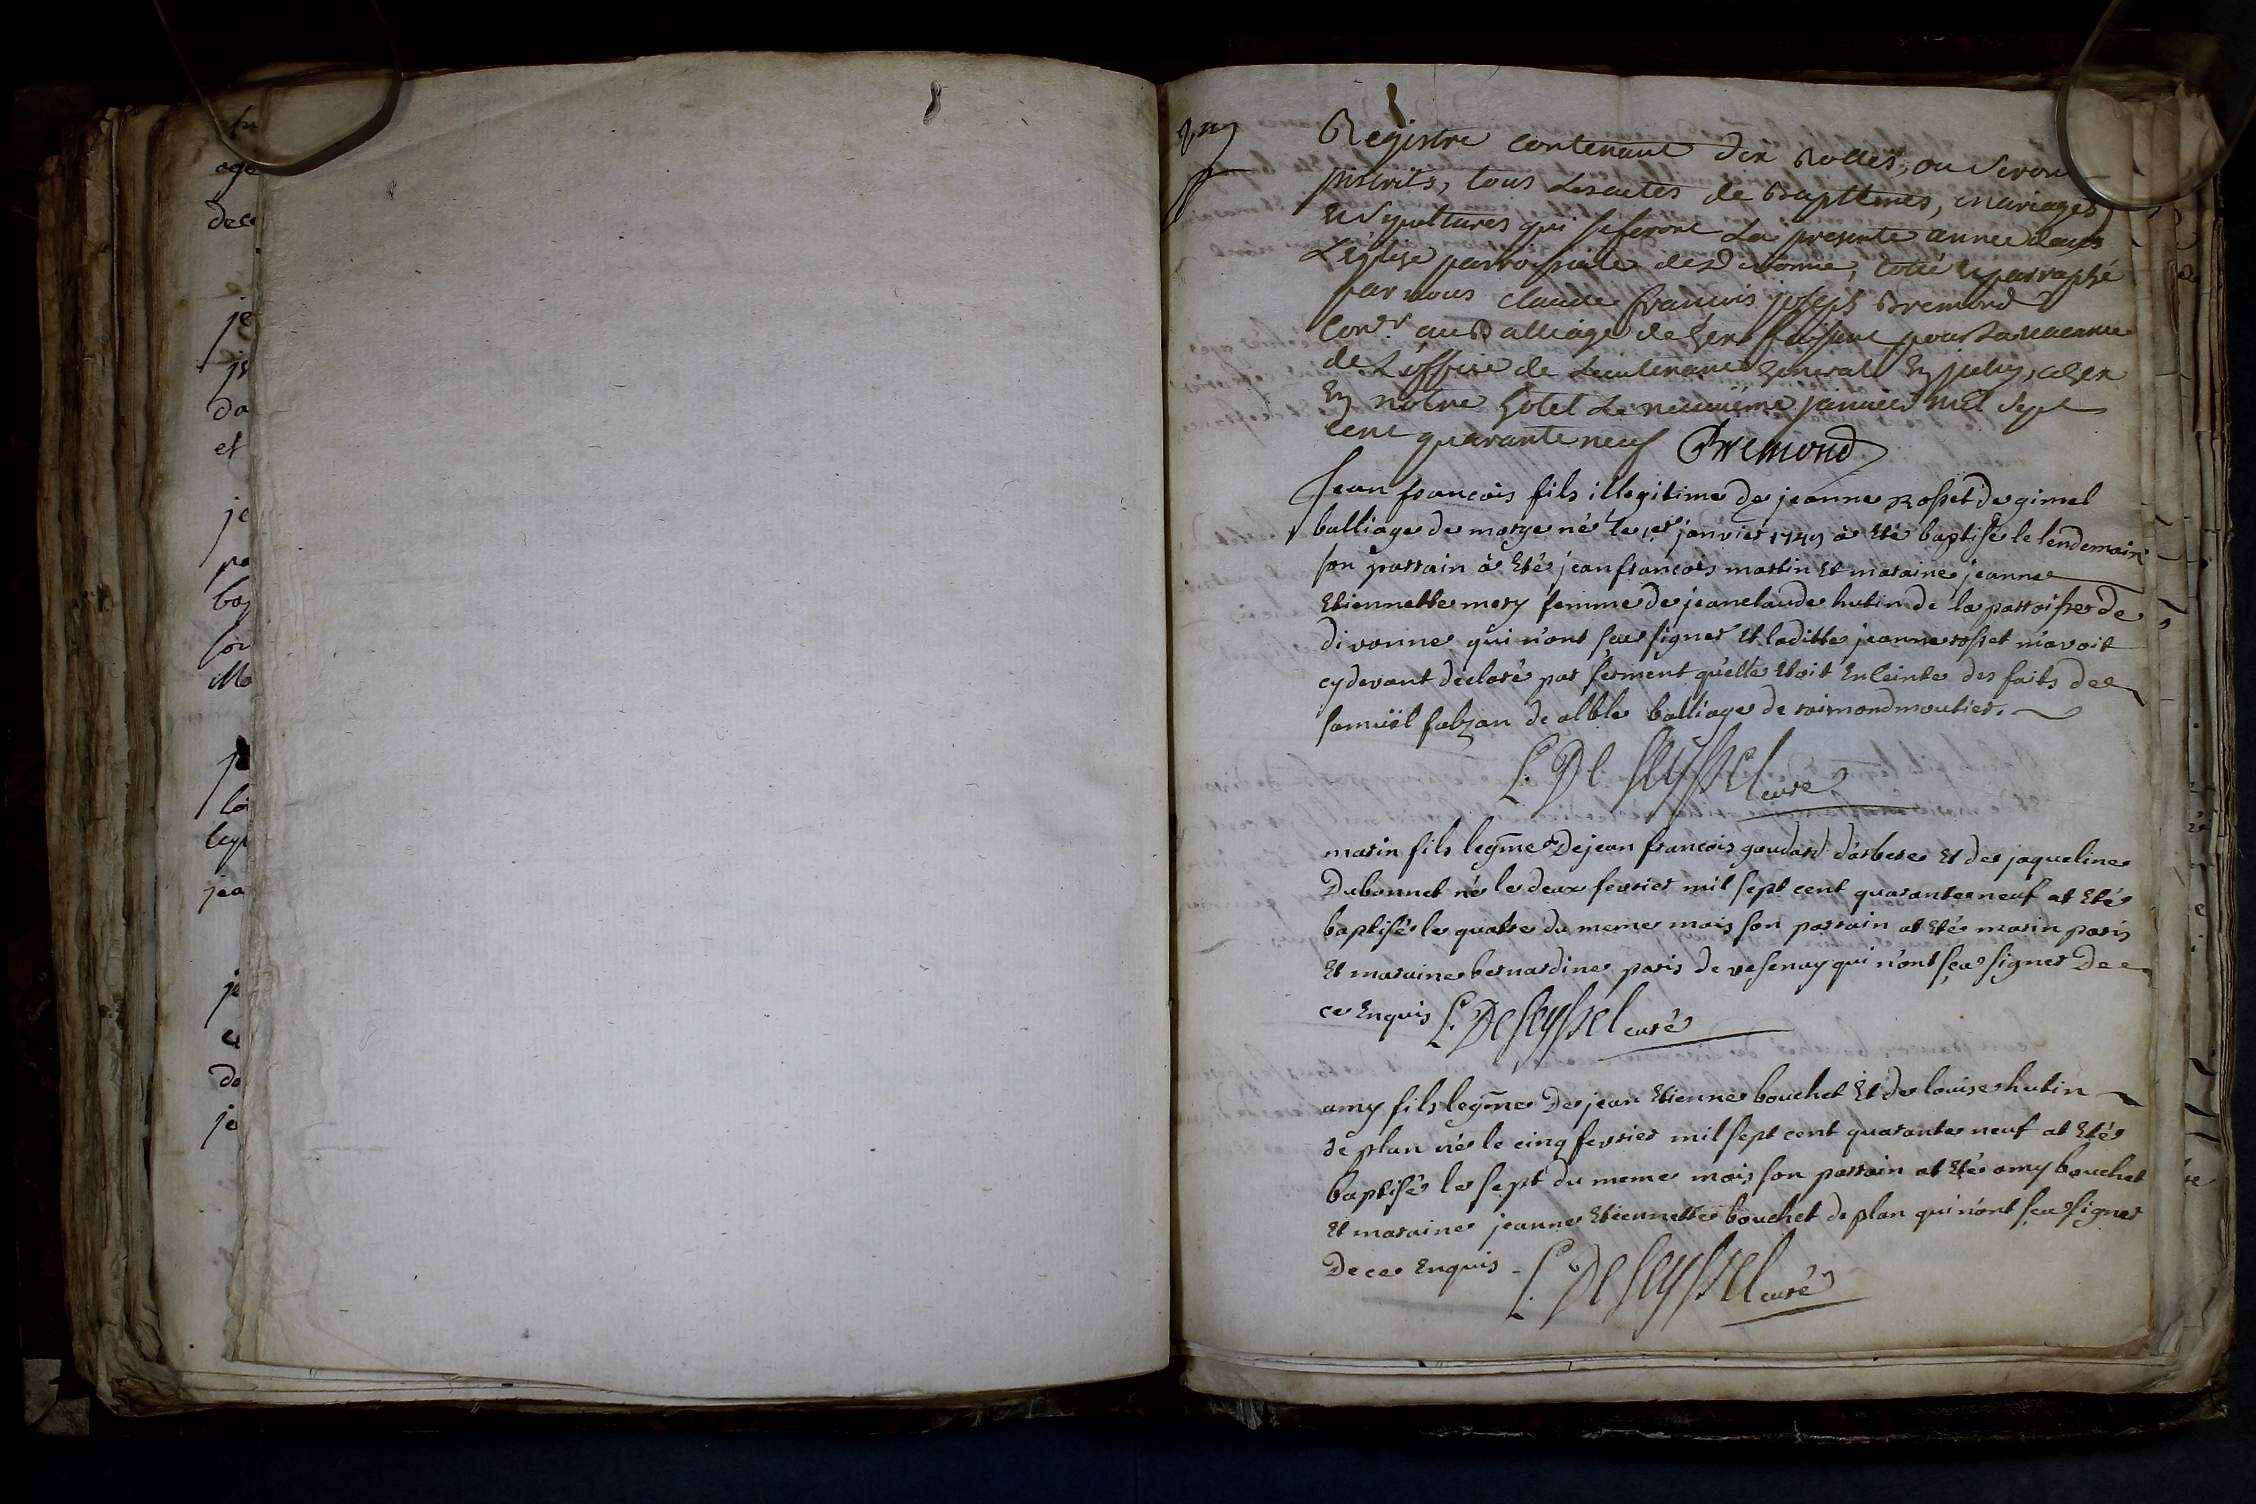 hu
age
dece
je
js
da
et
je
pa
bap
son
Ma
la
legi
jea
je
ce
da
je
Registre contenant dix Rolles, ou Seront
Inscrits, tous Les actes de Bapttemes, Mariages,
Et Sepultures qui se feront La presente année dans
L'église parroissiale de divonne, cotté Et parraphé
par nous claude francois joseph Bremond
Con.er au Balliage de Gex faisant pour La vacance
de L'office de Lieutenant General En juty, a Gex
En nôtre hotel Le neuvième janvier mil Sept
cent quarante neuf Bremond
Jean francois fils illegitime de jeanne Rosset de gimel
balliage de morge né le 1er janvier 1749 à eté baptisé le lendemain
son parrain à eté jean francois martin et maraine jeanne
Etiennette mery femme de jean claude hutin de la parroisse de
divonne qui n'ont sceu signer et laditte jeanne rosset m'avoit
cy devant declaré par serment qu'elle etoit enceinte des faits de
samuël de alble balliage de raimondmoutier.
L. De Seyssel curé
marin fils legme De jean francois goudard d'arbere et de jaqueline
Dubonnet né le deux fevrier mil sept cent quarante neuf at eté
baptisé le quatre du meme mois son parrain at eté marin paris
et maraine bernardine paris de vesenay qui n'ont sçu signer De
ce enquis L. De Seyssel curé
amy fils legme De jean etienne bouchet et de louise hutin
de plan né le cinq fevrier mil sept cent quarante neuf at eté
baptisé le sept du meme mois son parrain at eté amy bouchet
et maraine jeanne etiennette bouchet de plan qui n'ont sceu signer
De ce enquis - L. De Seyssel curé